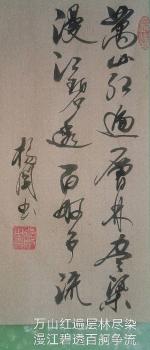 萬山红遍層林盡染
漫江碧透百舸争流
书
万山红遍层林尽染
漫江碧透百舸争流